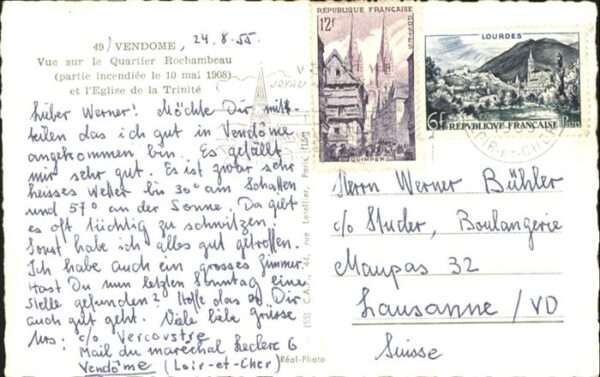 49/ VENDOME, 24.8.55
Vue sur le Quartier Rochambeau
(partie incendiée le 10 mai 1908)
et l'Eglise de la Trinité
Lieber Werner! Möchte Dir mit-
teilen das ich gut in Vendôme
angekommen bin. Es gefällt
mir sehr gut. Es ist zwar sehr
heisses Wetter bis 30° am Schatten
und 57° an der Sonne. Da gibt
es oft tüchtig zu schwitzen.
Sonst habe ich alles gut getroffen.
Ich habe auch ein grosses Zimmer.
Hast Du nun letzten Sonntag eine
Stelle gefunden? Hoffe das es Dir
auch gut geht. Viele liebe Grüsse
Urs: c/o Vercoustre
Mail du maréchal Leclerc 6
Vendôme (Loir-et-Cher)
Réal-Photo
RÉPUBLIQUE FRANÇAISE
12F
QUIMPER
LOURDES
6F RÉPUBLIQUE FRANÇAISE Postes
LOIR-ET-CHER
Herrn Werner Bühler
c/o Studer, Boulangerie
Maupas 32
Lausanne / VD
Suisse